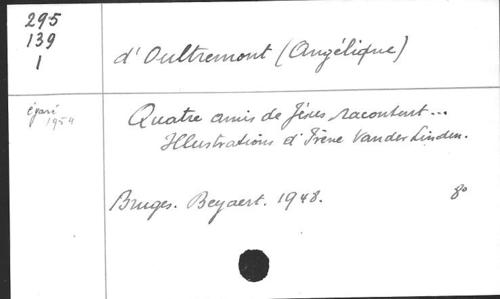 295
139
1
d'Oultremont (Angélique)
égaré
1954
Quatre amis de Jésus racontent...
Illustrations d'Irène Vander Linden.
Bruges. Beyaert. 1948. 8°